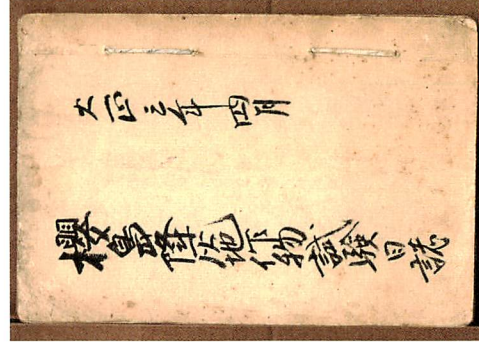 大正三年四月
櫻島降灰地作物試験日誌